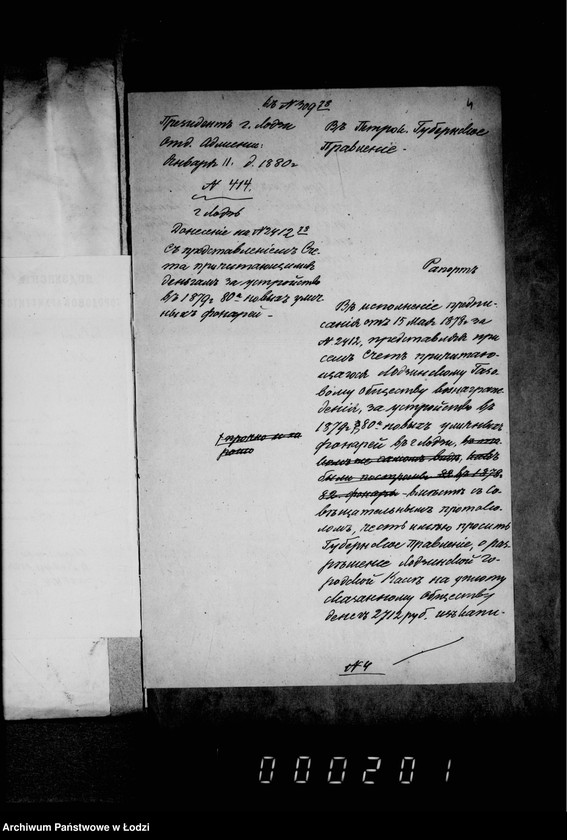 къ № 309 78
4
Президентъ г. Лодзи
Отд. Админи:
Января 11. д. 1880 г
№ 414.
г Лодзь
Донесеніе на № 2412 78
Съ представленіемъ Сче-
та причитающимся
деньгамъ за устройство
въ 1879 г. 80ти новыхъ улич-
ныхъ фонарей -
Въ Петрок. Губернское
Правленіе. -
Рапортъ
Въ исполненіе предпи-
санія отъ 15 Мая 1878 г за
№ 2412, представляя при
семъ Счетъ причитаю-
щагося Лодзинскому Газо-
вому обществу вознаграж-
денія, за устройство въ
1879 г. 80ти новыхъ уличныхъ
фонарей въ г Лодзи,
прочно и хо
рошо
были построены въ 1878
82 фонаря - вмѣстѣ съ Со-
вѣщательнымъ протоко-
ломъ, честь имѣю просить
Губернское Правленіе, о раз-
рѣшеніе Лодзинской Го-
родской Кассѣ на уплату
сказанному обществу
денегъ 2712 руб. изъ капи-
№ 4
000201
Archiwum Państwowe w Łodzi